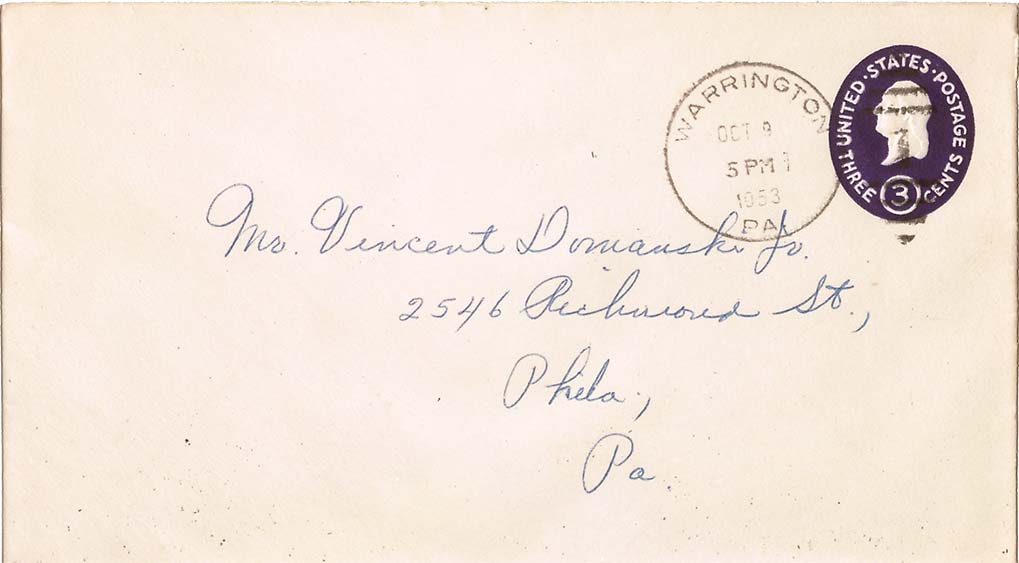 WARRINGTON
OCT 9
5 PM
1953
PA
UNITED·STATES·POSTAGE
THREE 3 CENTS
Mr. Vincent Domanski Jr.
2546 Richmond St.,
Phila.,
Pa.